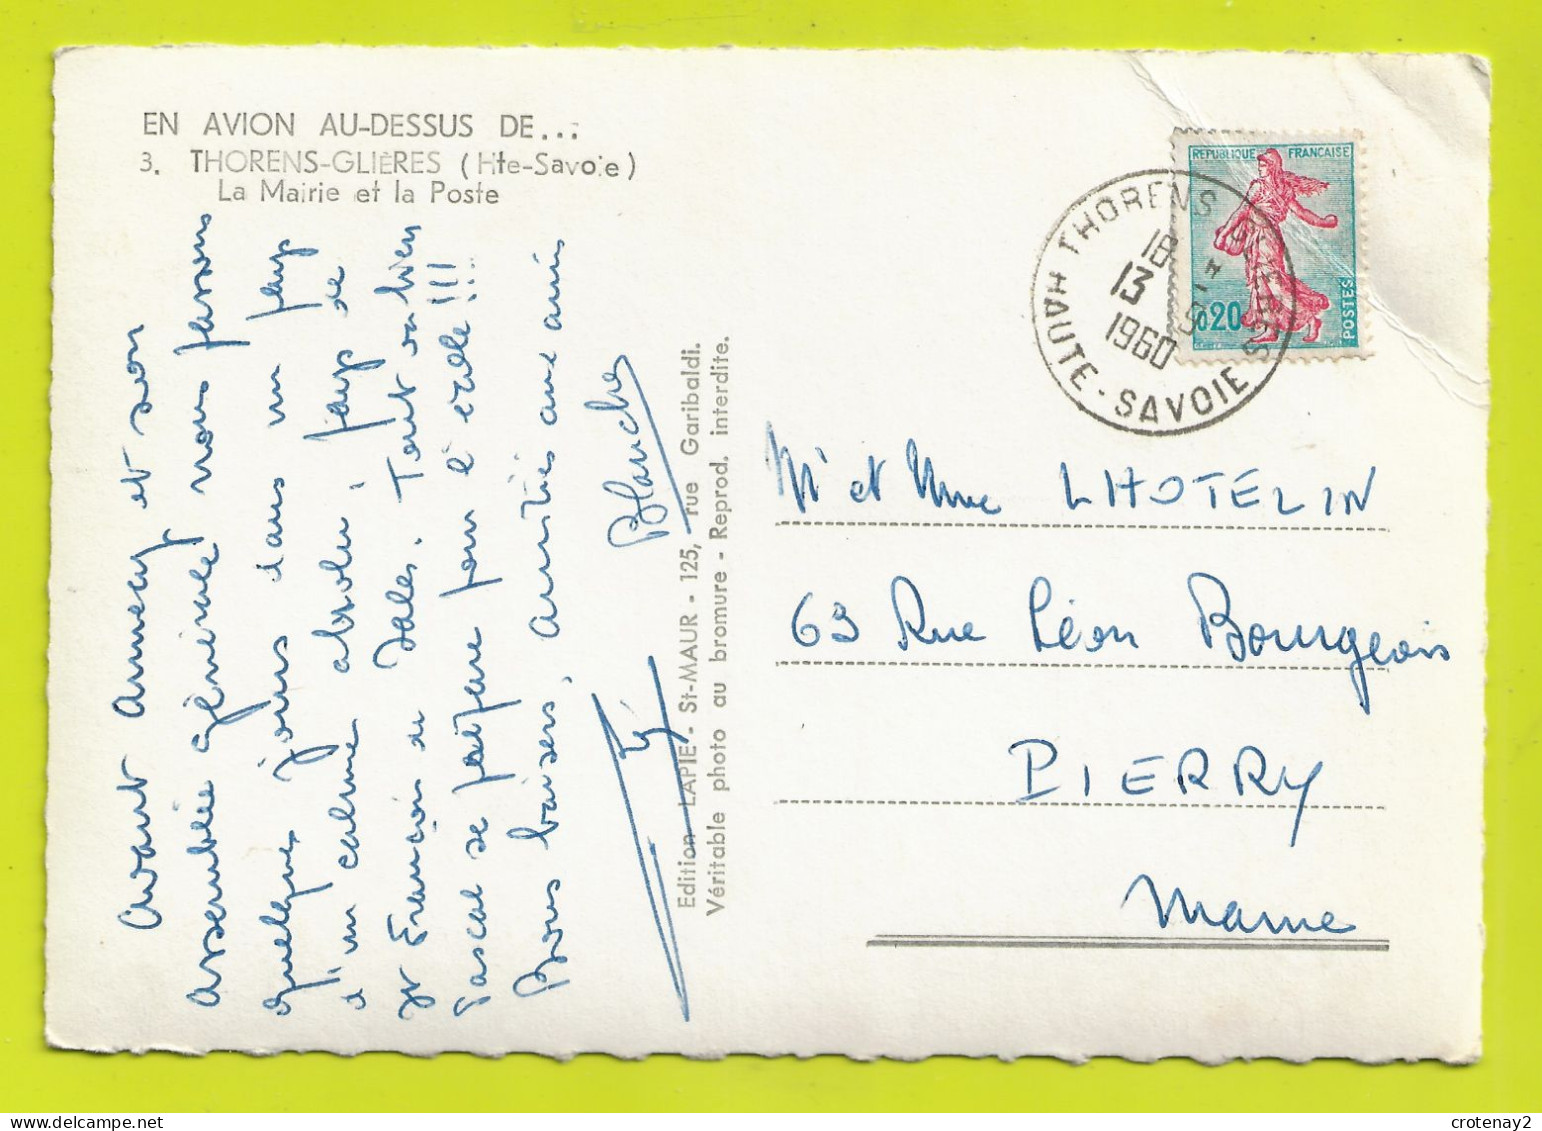 EN AVION AU-DESSUS DE...
3. THORENS-GLIÈRES (Hte-Savoie)
La Mairie et la Poste
Avant Annecy et son
Assemblée générale nous passons
quelques jours dans un pays
d'un calme absolu : pays de
St François de Sales. Tout va bien
Pascal se prépare pour l'école !!!
Bons baisers, amitiés aux amis
Blanche
Edition LAPIE - St-MAUR - 125, rue Garibaldi.
Véritable photo au bromure - Reprod. interdite.
REPUBLIQUE FRANCAISE
0,20
POSTES
THORENS-GLIERES
18 H
13 - 9
1960
HAUTE-SAVOIE
Mr et Mme LHOTELIN
63 Rue Léon Bourgeois
PIERRY
Marne
crotenay2